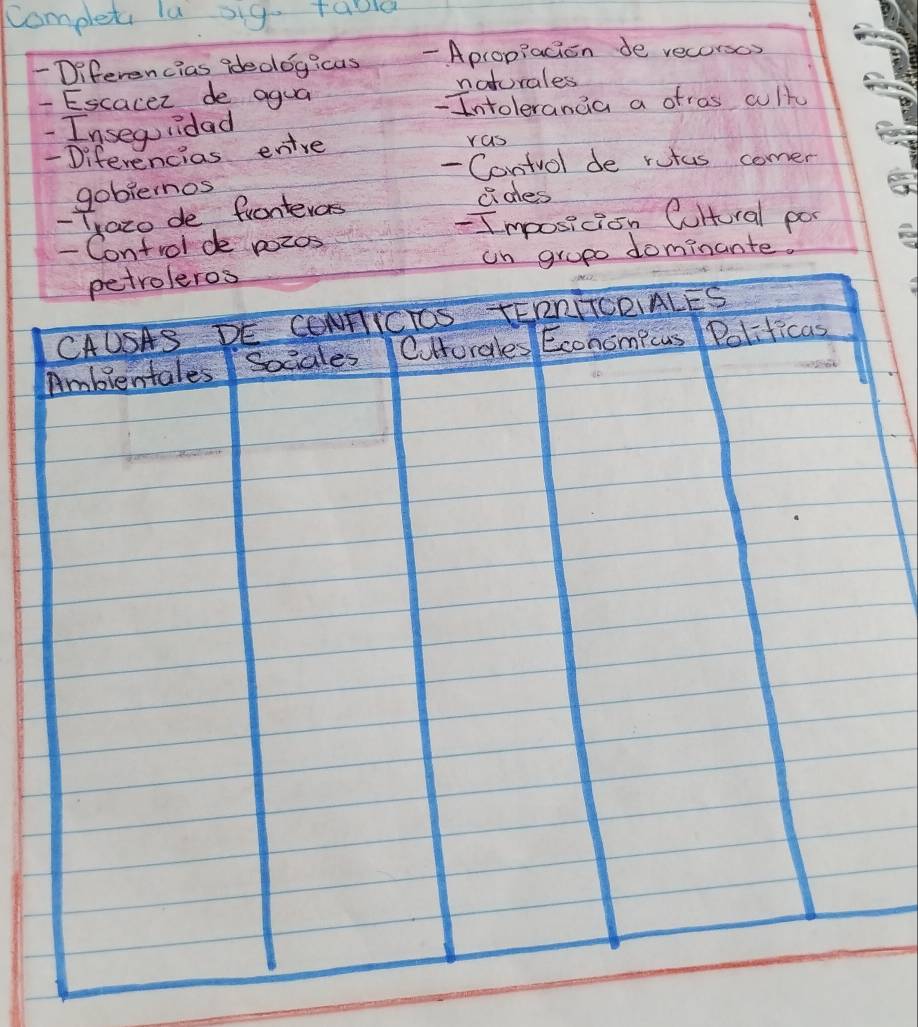 Completa la sig. tabla
-Diferencias ideológicas
-Escacez de agua
-Inseguridad
-Diferencias entre
gobiernos
-Trazo de fronteras
-Control de pozos
petroleros
-Apropiación de recursos
naturales
-Intolerancia a otras cultu
ras
-Control de rutas comer
ciales
-Imposición Cultural por
un grupo dominante.
CAUSAS DE CONFLICTOS TERRITORIALES
Ambientales Sociales Culturales Económicas Políticas